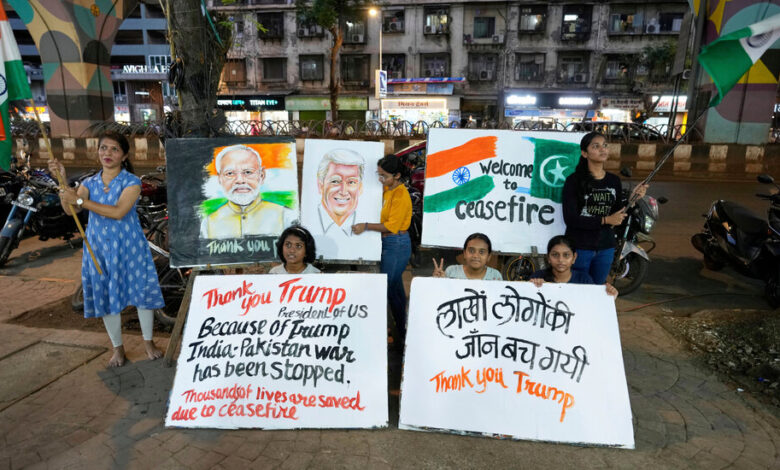 AVIGHNA
TITAN EYE+
THANK YOU
Welcome
to
ceasefire
DO
WHAT.
Thank you Trump
President of US
Because of Trump
India-Pakistan war
has been stopped.
Thousands of lives are saved
due to ceasefire
लाखों लोगोंकी
जाँन बच गयी
Thank you Trump